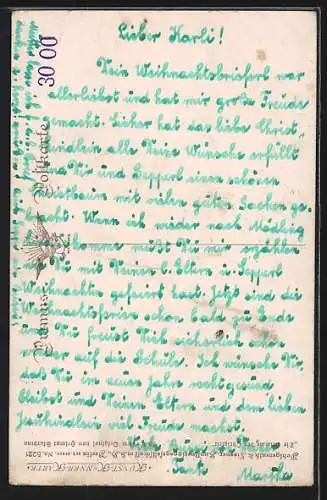 Lieber Karli!
Dein Weihnachtsbrieferl war
allerliebst und hat mir große Freude
gemacht. Sicher hat das liebe Christ-
kindlein alle Deine Wünsche erfüllt
und Dir und Sepperl einen schönen
Christbaum mit vielen guten Sachen ge-
bracht. Wenn ich wieder nach Mödling
komme mußt Du mir erzählen
Du mit Deinen l. Eltern u. Sepperl
Weihnachten gefeiert hast. Jetzt sind die
Weihnachtsferien schon bald zu Ende
Du freust Dich sicherlich schon
wieder auf die Schule. Ich wünsche Dir,
daß Du im neuen Jahr recht gesund
bleibst und Deinen Eltern und dem lieben
Jesukindlein viel Freude machst.
Viele Deine
Tante Martha
30 00
Postkarte
Primus